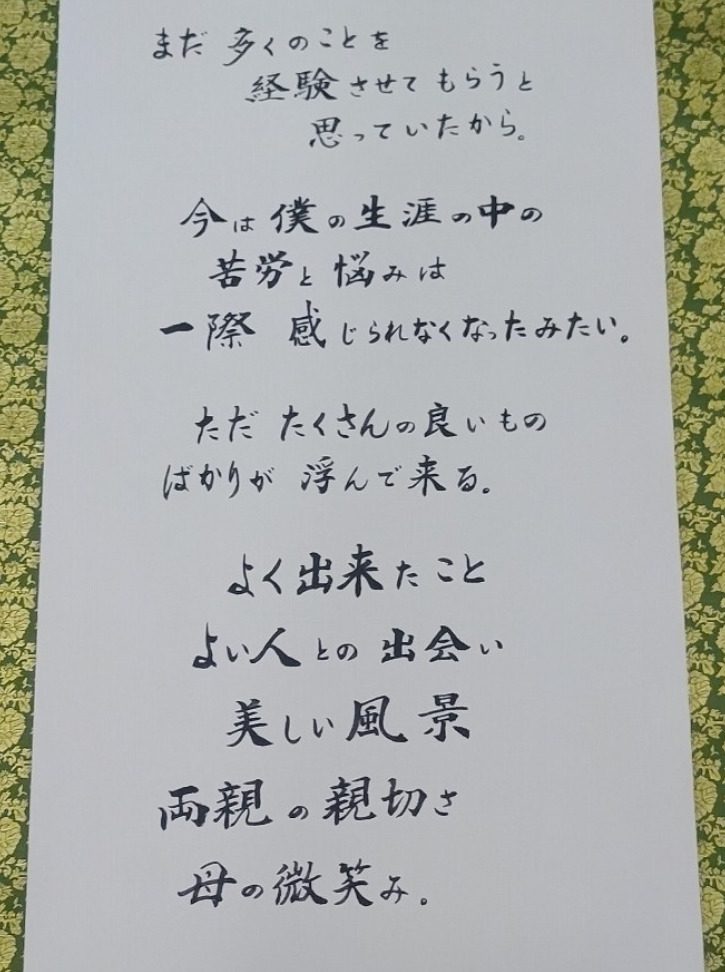 まだ 多くのことを
経験させてもらうと
思っていたから。
今は僕の生涯の中の
苦労と悩みは
一際 感じられなくなったみたい。
ただ たくさんの良いもの
ばかりが 浮んで来る。
よく出来たこと
よい人との出会い
美しい風景
両親の親切さ
母の微笑み。